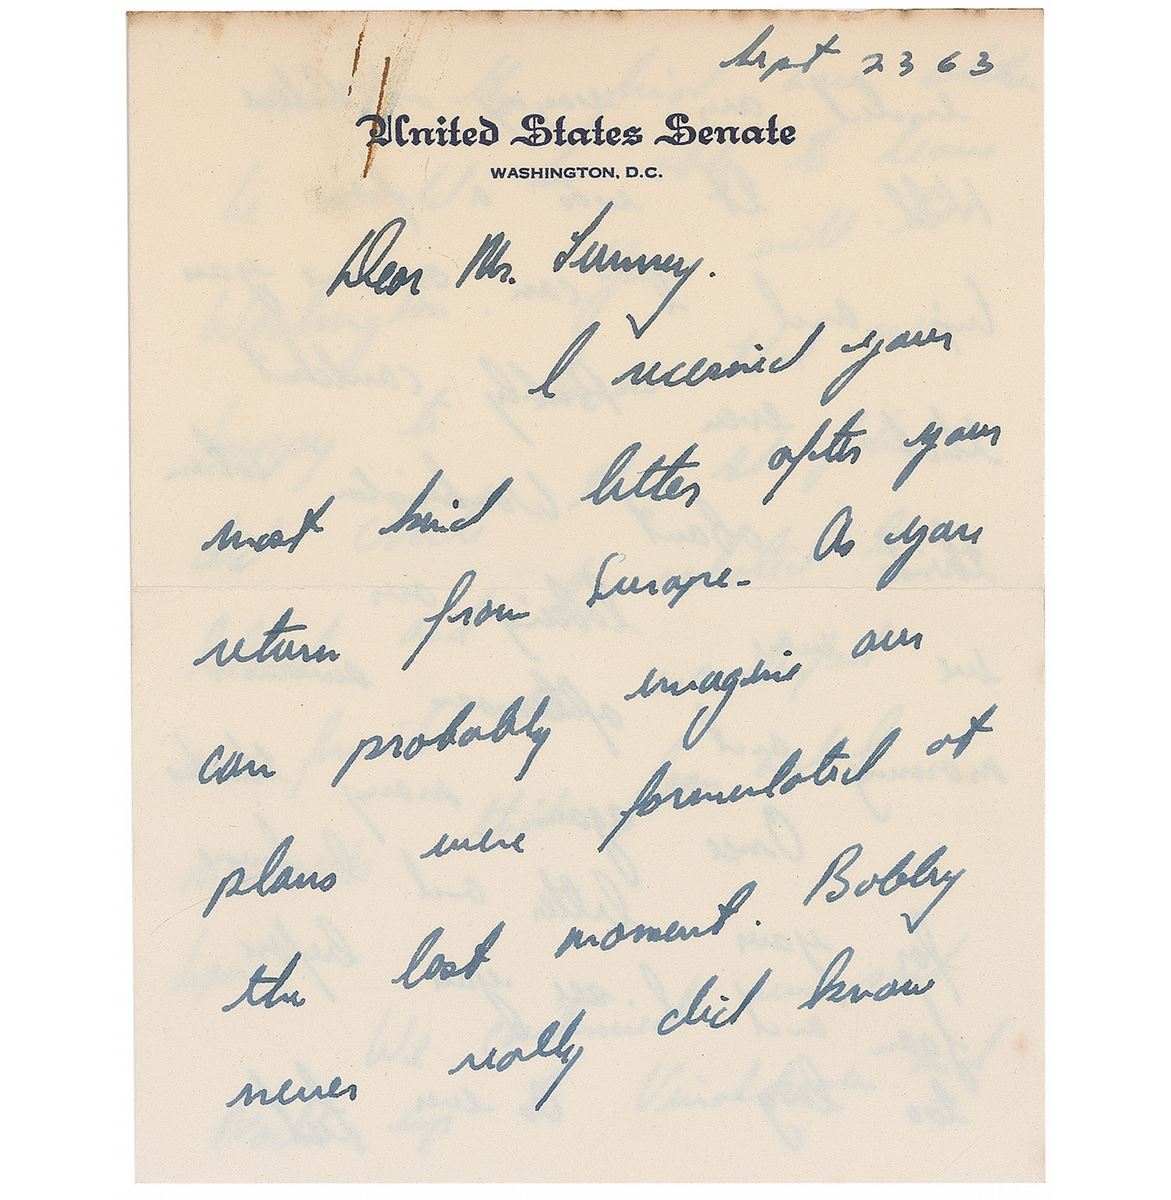 Sept 23 63
United States Senate
WASHINGTON, D.C.
Dear Mr. Tunney.
I received your
most kind letter after your
return from Europe - As you
can probably imagine our
plans were formulated at
the last moment. Bobby
never really did know